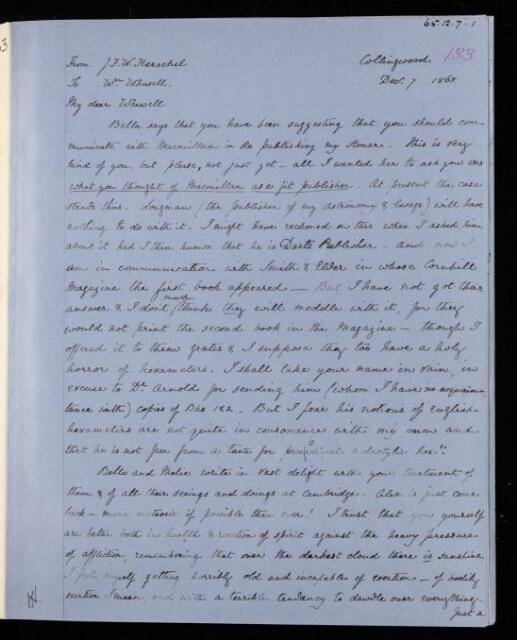 65-12-7-1
133
From J.F.W. Herschel
Collingwood
To Wm. Whewell.
Dec. 7 1865
My dear Whewell
Bella says that you have been suggesting that you should com-
municate with Macmillan in re publishing my Homer. This is very
kind of you, but please, not just yet - all I wanted her to ask you was
what you thought of Macmillan as a fit publisher. At present the case
stands thus. Longman (the publisher of my astronomy & Essays) will have
nothing to do with it. I might have reckoned on this when I asked him
about it had I then known that he is Darts Publisher. and now I
am in communication with Smith & Elder in whose Cornhill
Magazine the first book appeared — But I have not got their
answer & I don't much think they will meddle with it, for they
would not print the second book in the Magazine - though I
offered it to them gratis & I suppose they too have a holy
horror of hexameters. I shall take your name in vain, in
excuse to Dr. Arnold for sending him (whom I have no acquain-
tance with) copies of Bks 1&2. But I fear his notions of English
hexameters are not quite in consonance with my own and
that he is not free from a taste for & dactylic hexrs.
Bella and Melie write in vast delight with your treatment of
them & of all their seeings and doings at Cambridge. Alex is just come
back - more if possible than ever! I trust that you yourself
are better both in health & reaction of spirit against the heavy pressure
of affliction, remembering that over the darkest cloud there is sunshine
I feel myself getting horribly old and incapable of exertion - of bodily
exertion I mean, and with a terrible tendency to dawdle over everything.
Just a